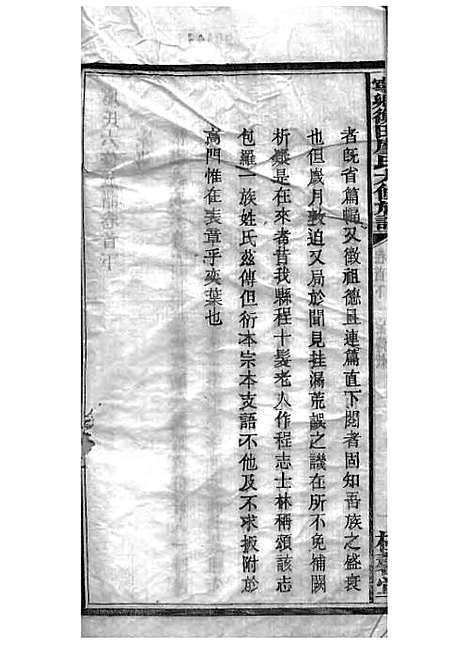 鄉衡田周氏六修族譜
者旣省篇幅又徵祖德且連篇直下閱者固知吾族之盛衰
也但歲月敦迫又局於聞見挂漏荒誤之譏在所不免補闕
析疑是在來者昔我縣程十髮老人作程志士林稱頌該志
包羅一族姓氏茲傳但衍本宗本支語不他及不求扳附於
高門惟在表章乎奕葉也